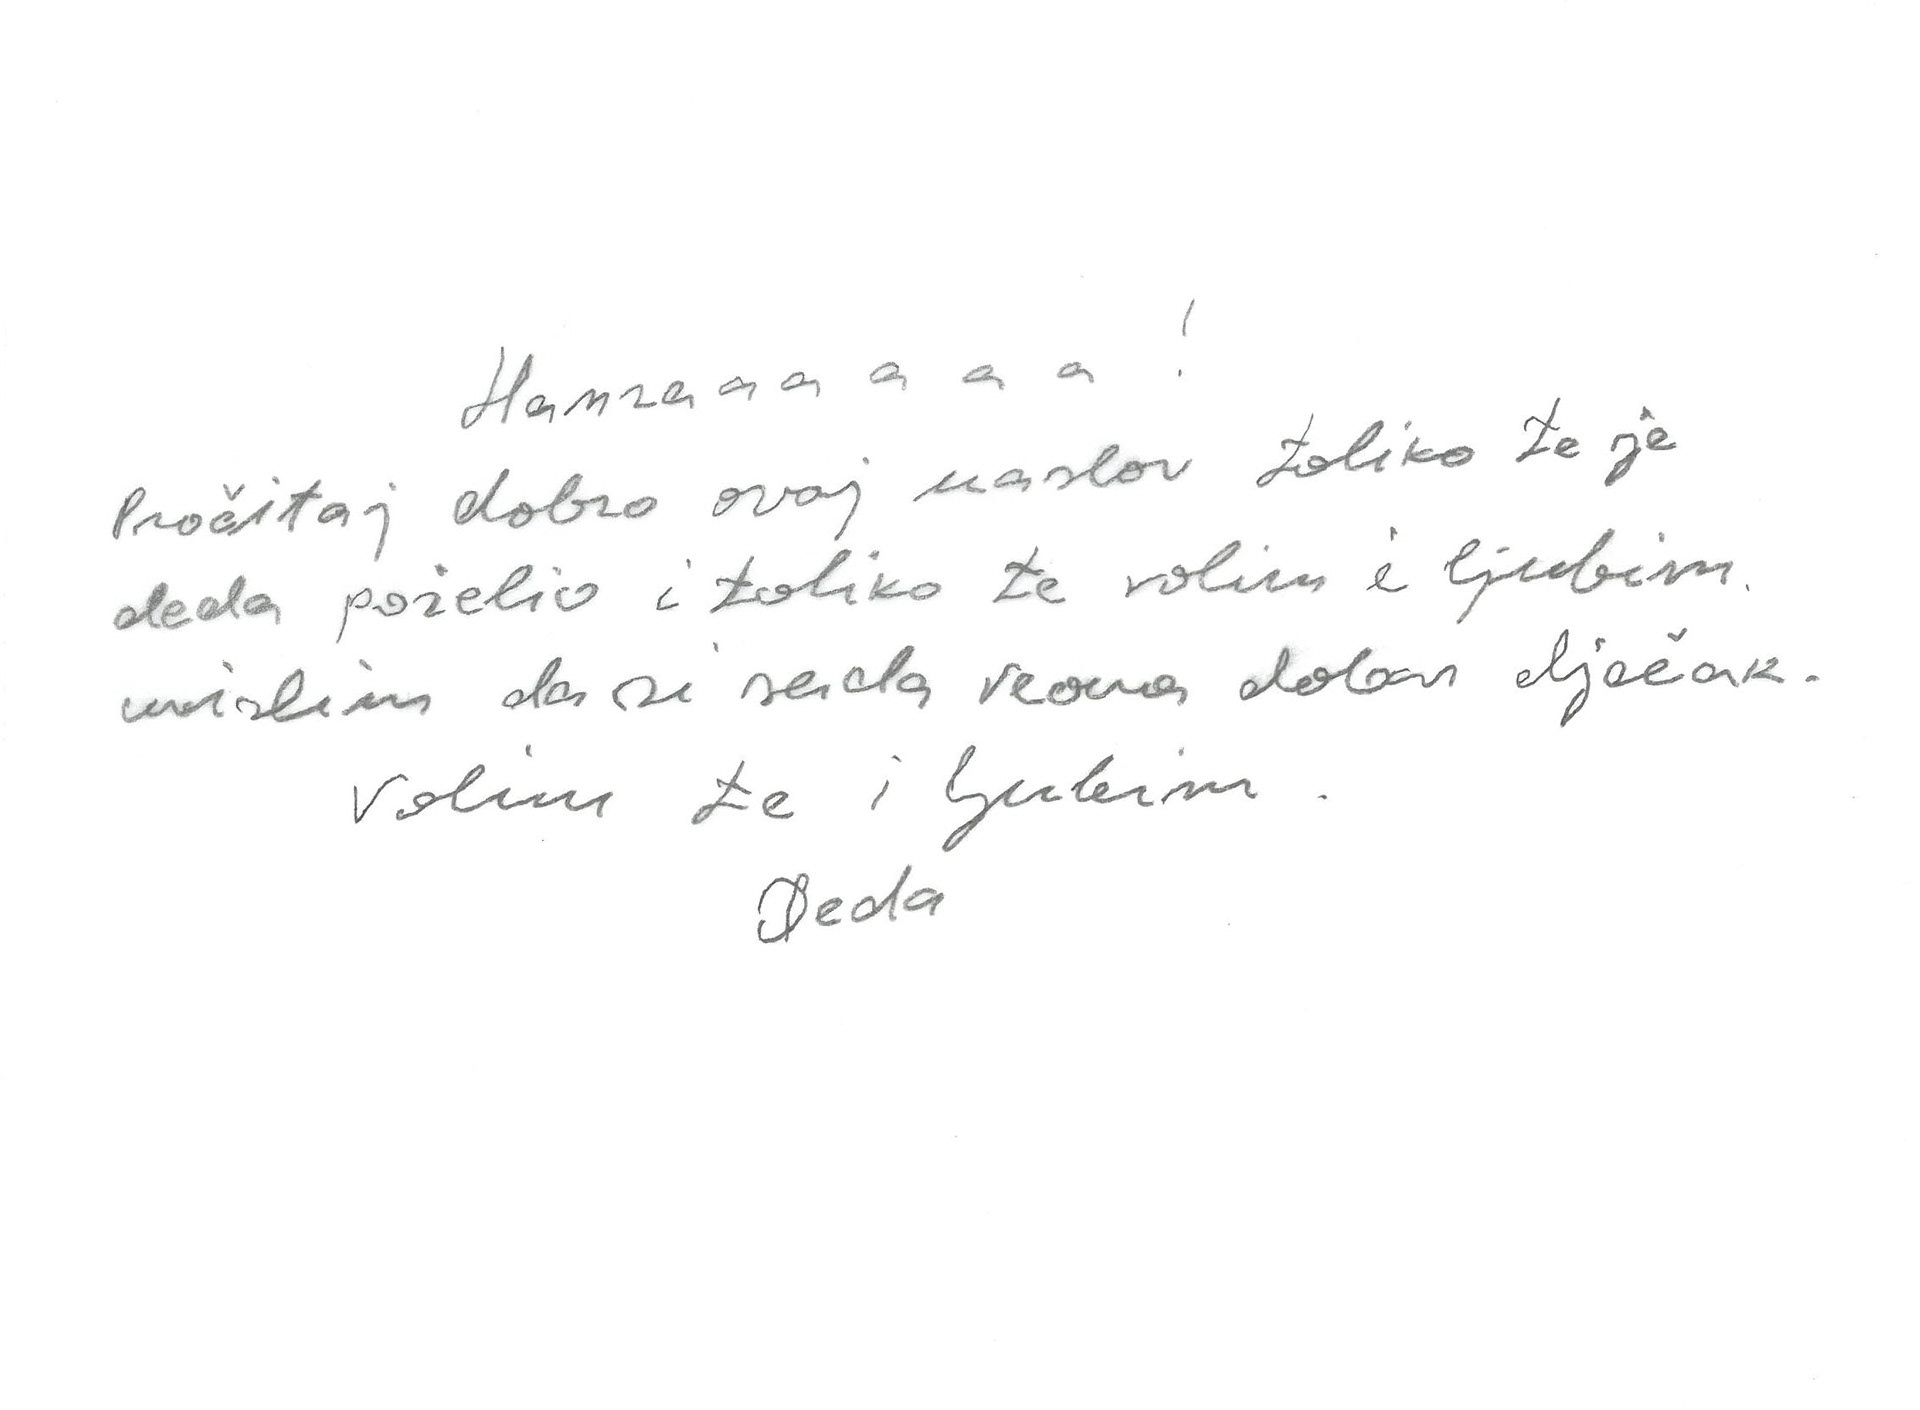 Hamzaaaaaaa!
Pročitaj dobro ovaj naslov toliko te je
deda poželio i toliko te volim i ljubim.
mislim da si sada veoma dobar dječak.
Volim te i ljubim.
Deda